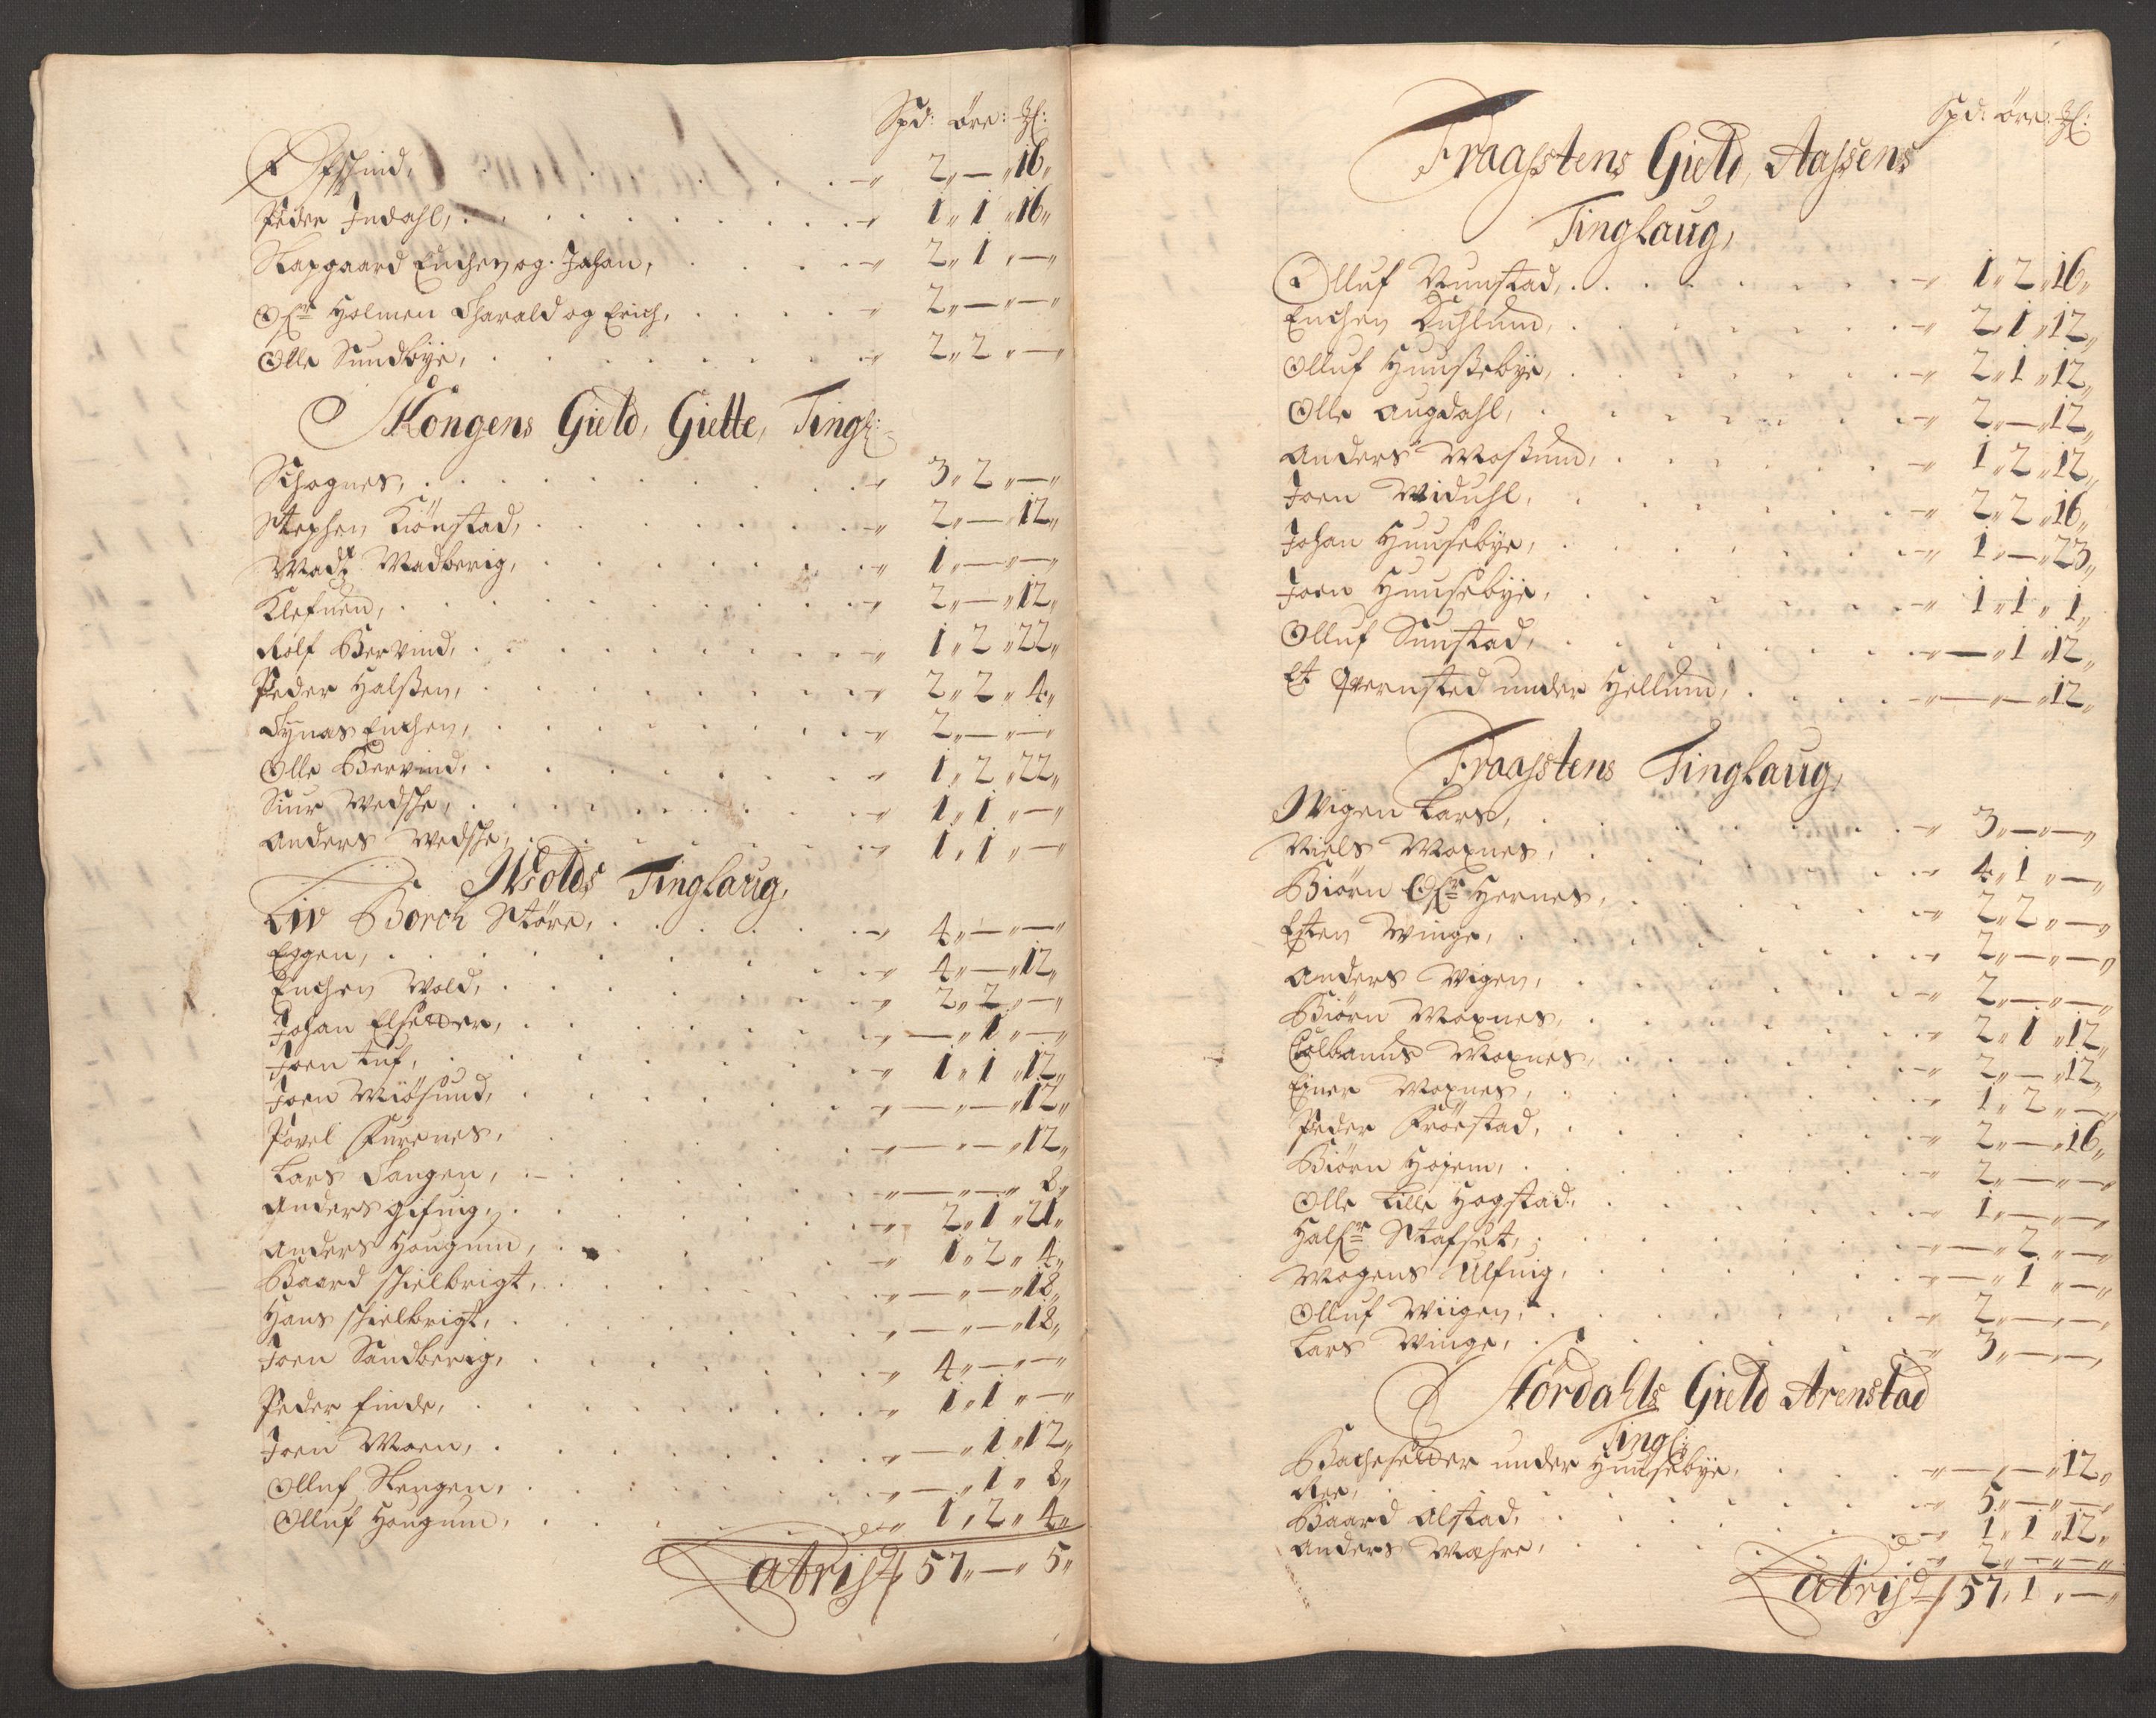 Spd: öre: ꝑ:
Opind, 2 „ — „ 16 „
Peder Indahl, 1 „ 1 „ 16 „
Skapgaard Enchen og Johan, 2 „ 1 „ — „
Øfr Holmen Harald og Erich, 2 „ — „ — „
Olle Sundbye, 2 „ 2 „ — „
Skongens Gield, Giette, Tingl:
Schognes, 3 „ 2 „ — „
Stephen Kiönstad, 2 „ — „ 12 „
Mads Nadberig, 1 „ — „ — „
Klefuen, 2 „ — „ 12 „
Rolf Bervind, 1 „ 2 „ 22 „
Peder Halßen, 2 „ 2 „ 4 „
Fynas Enchen, 2 „ — „ — „
Olle Bervind, 1 „ 2 „ 22 „
Siur Wedshe, 1 „ 1 „ — „
Anders Wedshe, 1 „ 1 „ — „
Wolds Tinglaug,
Liv Borch Störe, 4 „ — „ — „
Eggen, 4 „ — „ 12 „
Enchen Wold, 2 „ 2 „ — „
Johan Elsetter, — „ 1 „ — „
Joen tuf, 1 „ 1 „ 12 „
Joen Miösund, — „ — „ 12 „
Povel Furenes, — „ — „ 12 „
Lars Fangen, — „ — „ 8 „
Anders gifuig, 2 „ 1 „ 21 „
Anders Hougum, 1 „ 2 „ 4 „
Baard schielbrigt, — „ — „ 18 „
Hans schielbrigt, — „ — „ 18 „
Joen Sandberig, 4 „ — „ — „
Peder finde, 1 „ 1 „ — „
Joen Moen, — „ 1 „ 12 „
Olluf Stengen, — „ 1 „ 8 „
Olluf Hougum, 1 „ 2 „ 4 „
Latris 57 „ — „ 5 „
Spd: öre: ꝑ:
Fraastens Gield, Aassens
Tinglaug,
Olluf Nunstad, 1 „ 2 „ 16 „
Enchen Duhlum, 2 „ 1 „ 12 „
Olluf Huußebye, 2 „ 1 „ 12 „
Olle Augdahl, 2 „ — „ 12 „
Anders Moßum, 1 „ 2 „ 12 „
Joen Widuhl, 2 „ 2 „ 16 „
Johan Huusebye, 1 „ — „ 23 „
Joen Huusebye, 1 „ 1 „ 1 „
Olluf Sunstad, — „ 1 „ 12 „
Et Qvernsted under Hellum, — „ — „ 12 „
Fraastens Tinglaug,
Wigen Lars, 3 „ — „ — „
Niels Moxnes, 4 „ 1 „ — „
Biörn Øfr Hernes, 2 „ 2 „ — „
Esten Winge, 2 „ — „ — „
Anders Wigen, 2 „ — „ — „
Biörn Moxnes, 2 „ 1 „ 12 „
Colbanus Moxnes, 2 „ — „ 12 „
Einer Moxnes, 1 „ 2 „ — „
Peder Fröestad, 2 „ — „ 16 „
Biörn Hojem, 2 „ — „ — „
Olle Lille Hogstad, 1 „ — „ — „
Halfr Stafset, — „ 2 „ — „
Mogens Ulfuig, — „ 1 „ — „
Olluf Wiigen, 2 „ — „ — „
Lars Winge, 3 „ — „ — „
Stördahls Gield Arenstad
Tingl:
Bachesetter under Huusebye, — „ — „ 12 „
Ree, 5 „ — „ — „
Baard Alstad, 1 „ 1 „ 12 „
Anders Mahre, 2 „ — „ — „
Latris 57 „ 1 „ — „